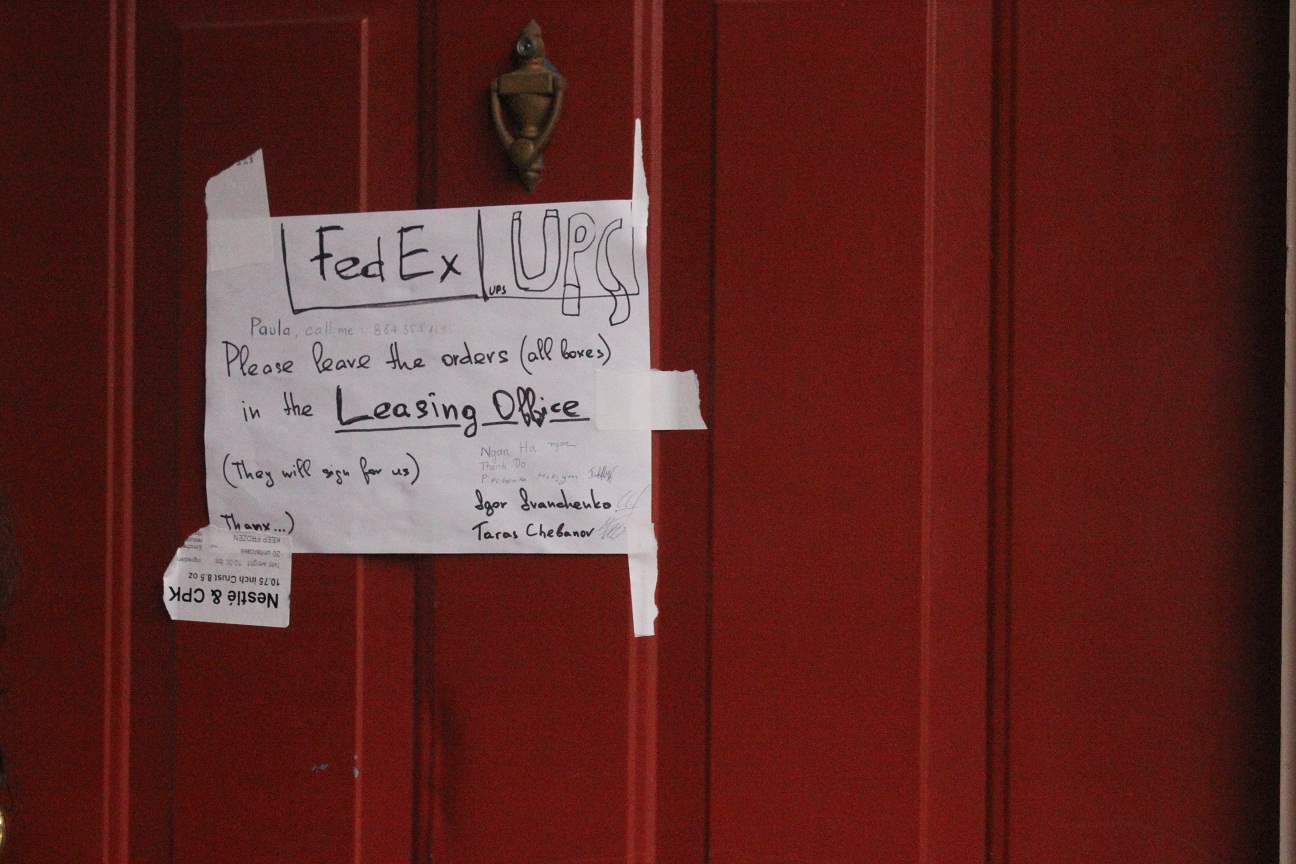 FedEx UPS
UPS
Paula, call me
Please leave the orders (all boxes)
in the Leasing Office
(They will sign for us)
Ngan Ha ngan
Thanh Do
Igor Ivanchenko
Thanx...)
Taras Chebanov
KEEP FROZEN
20 units/case
Net weight 10.00 lbs
10.75 inch Crust 8.5 oz
Nestlé & CPK